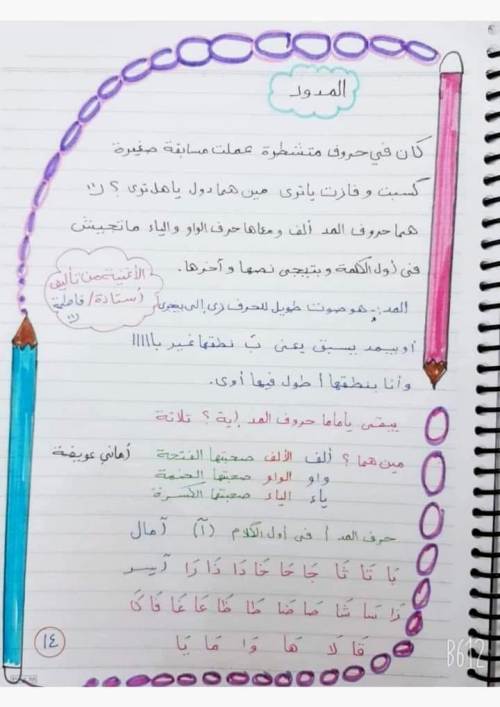 المدود
كان في حروف متشطرة عملت مسابقة صغيرة
كسبت و فازت ياترى مين هما دول ياهل ترى ؟
هما حروف المد ألف ومعاها حرف الواو والياء ماتجيش
فى أول الكلمة وبتيجى نصها وآخرها.
الأغنية من تأليف
أستاذة/ فاطمة
المد :- هو صوت طويل للحرف زى إلى بيجرى
أو بيمد بيسبق يعنى بَ نطقها غير باااااا
وأنا بنطقها أطول فيها أوى.
يبقى ياماما حروف المد إية ؟ ثلاثة
مين هما ؟ ألف الألف صحبتها الفتحة
أماني عويضة
واو الواو صحبتها الضمة
ياء الياء صحبتها الكسرة
حرف المد أ فى أول الكلام (آ) آمال
بَا تَا ثَا جَا حَا خَا دَا ذَا رَا آيسر
زَا سَا شَا صَا ضَا طَا ظَا عَا غَا فَا كَا
قَا لَا هَا وَا مَا يَا
١٤
B612